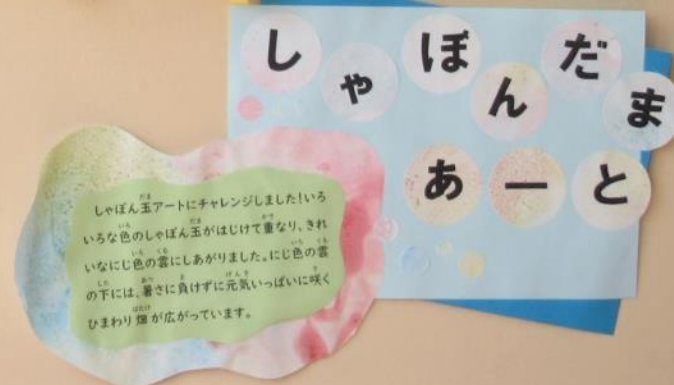 しゃぼんだま
あーと
しゃぼん玉アートにチャレンジしました！いろ
いろな色のしゃぼん玉がはじけて重なり、きれ
いなにじ色の雲にしあがりました。にじ色の雲
の下には、暑さに負けずに元気いっぱいに咲く
ひまわり畑が広がっています。